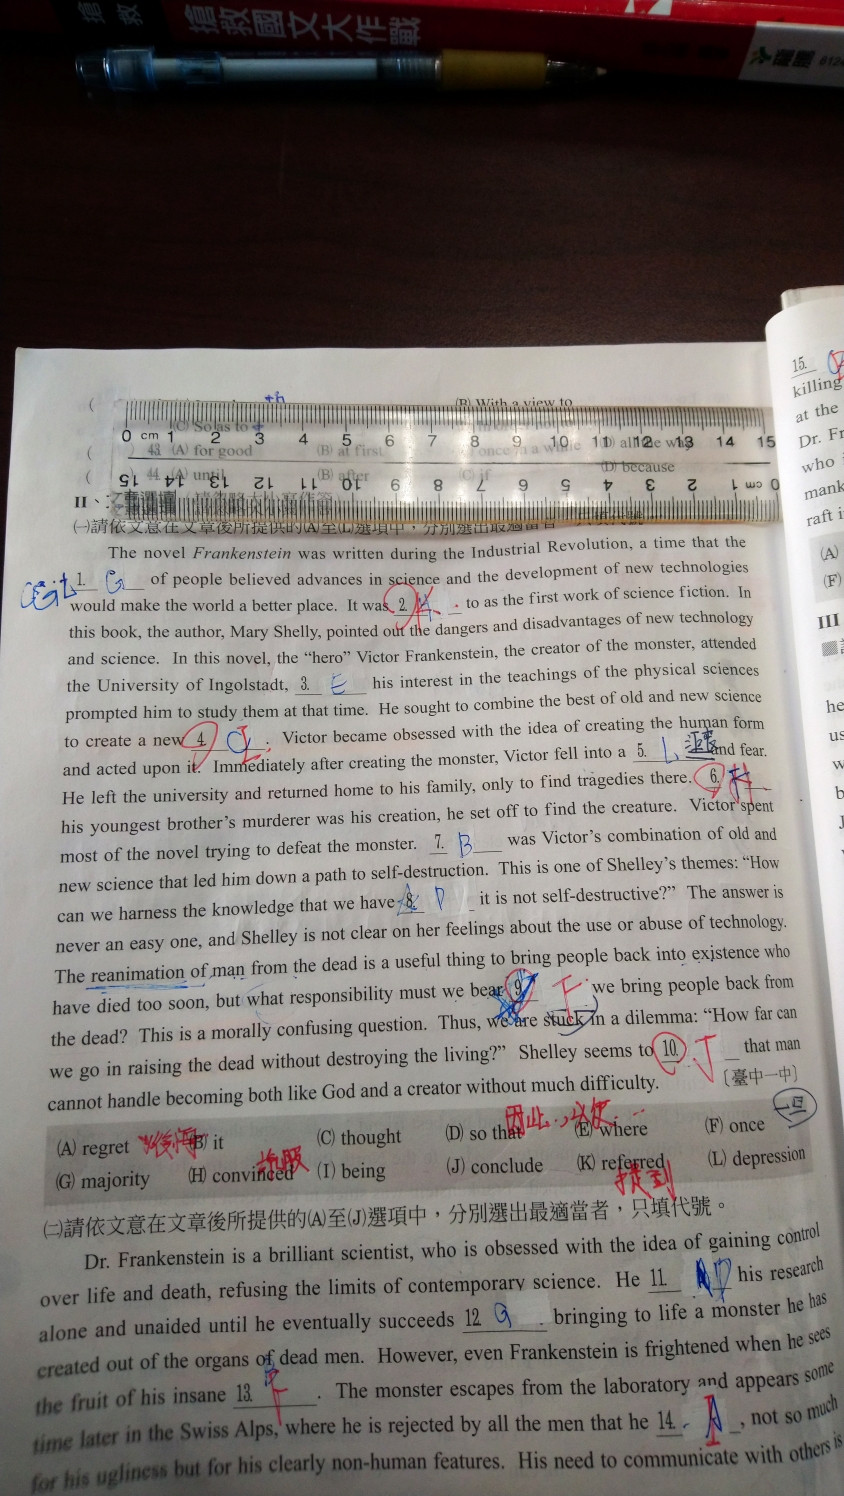 搶救
搶救國文大作戰
龍騰
(B) With a view to
(C) So as to
0 cm 1 2 3 4 5 6 7 8 9 10 11 12 13 14 15
43. (A) for good (B) at first once in a while (D) all the way
44. (A) until (B) after (C) if (D) because
15 14 13 12 11 10 9 8 7 6 5 4 3 2 1 cm 0
II、文意選填
㈠請依文意在文章後所提供的(A)至(L)選項中，分別選出最適當者
The novel Frankenstein was written during the Industrial Revolution, a time that the
1. G of people believed advances in science and the development of new technologies
would make the world a better place. It was 2. K to as the first work of science fiction. In
this book, the author, Mary Shelly, pointed out the dangers and disadvantages of new technology
and science. In this novel, the “hero” Victor Frankenstein, the creator of the monster, attended
the University of Ingolstadt, 3. E his interest in the teachings of the physical sciences
prompted him to study them at that time. He sought to combine the best of old and new science
to create a new 4. I. Victor became obsessed with the idea of creating the human form
and acted upon it. Immediately after creating the monster, Victor fell into a 5. L and fear.
He left the university and returned home to his family, only to find tragedies there. 6. H
his youngest brother’s murderer was his creation, he set off to find the creature. Victor spent
most of the novel trying to defeat the monster. 7. B was Victor’s combination of old and
new science that led him down a path to self-destruction. This is one of Shelley’s themes: “How
can we harness the knowledge that we have 8. D it is not self-destructive?” The answer is
never an easy one, and Shelley is not clear on her feelings about the use or abuse of technology.
The reanimation of man from the dead is a useful thing to bring people back into existence who
have died too soon, but what responsibility must we bear 9. F we bring people back from
the dead? This is a morally confusing question. Thus, we are stuck in a dilemma: “How far can
we go in raising the dead without destroying the living?” Shelley seems to 10. J that man
cannot handle becoming both like God and a creator without much difficulty. 〔臺中一中〕
因此，以便… 一旦
(A) regret 後悔 (B) it (C) thought (D) so that (E) where (F) once
(G) majority (H) convinced 說服 (I) being (J) conclude (K) referred (L) depression
提到
㈡請依文意在文章後所提供的(A)至(J)選項中，分別選出最適當者，只填代號。
Dr. Frankenstein is a brilliant scientist, who is obsessed with the idea of gaining control
over life and death, refusing the limits of contemporary science. He 11. D his research
alone and unaided until he eventually succeeds 12. G. bringing to life a monster he has
created out of the organs of dead men. However, even Frankenstein is frightened when he sees
the fruit of his insane 13. F. The monster escapes from the laboratory and appears some
time later in the Swiss Alps, where he is rejected by all the men that he 14. I, not so much
for his ugliness but for his clearly non-human features. His need to communicate with others is
15.
killing
at the
Dr. Fr
who
mank
raft i
(A)
(F)
III
he
us
w
b
J